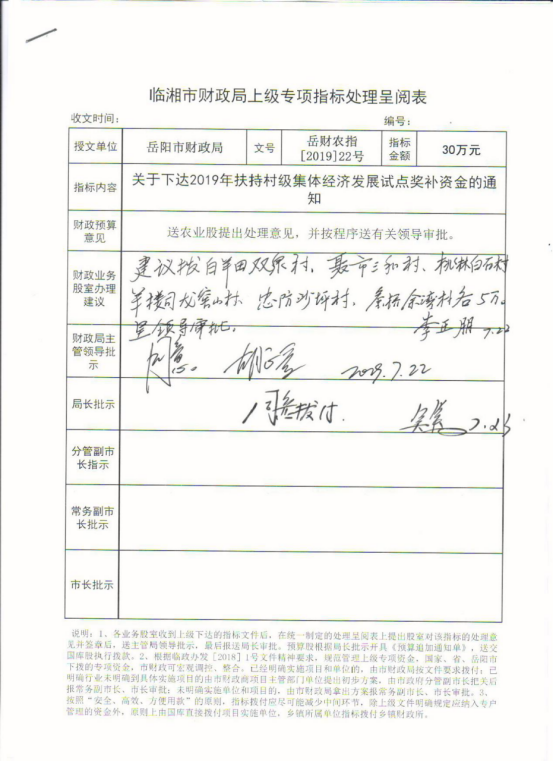 临湘市财政局上级专项指标处理呈阅表
收文时间： 编号：
授文单位 岳阳市财政局 文号 岳财农指[2019]22号 指标金额 30万元
指标内容 关于下达2019年扶持村级集体经济发展试点奖补资金的通
知
财政预算
意见 送农业股提出处理意见，并按程序送有关领导审批。
财政业务
股室办理
建议
建议拨白羊田双泉村，聂市三和村、桃林白石村
羊楼司龙窖山村、忠防沙坪村、 各5万。
呈领导审批。 李正朋 7.22
财政局主
管领导批
示
同意。 2019.7.22
局长批示
同意拨付. 7.23
分管副市
长指示
常务副市
长批示
市长批示
说明：1、各业务股室收到上级下达的指标文件后，在统一制定的处理呈阅表上提出股室对该指标的处理意
见并签章后，送主管局领导批示，最后报送局长审批。预算股根据局长批示开具《预算追加通知单》，送交
国库股执行拨款。2、根据临政办发［2018］1号文件精神要求，规范管理上级专项资金，国家、省、岳阳市
下拨的专项资金，市财政可宏观调控、整合。已经明确实施项目和单位的，由市财政局按文件要求拨付；已
明确行业未明确到具体实施项目的由市财政商项目主管部门单位提出初步方案，由市政府分管副市长把关后
报常务副市长、市长审批；未明确实施单位和项目的，由市财政局拿出方案报常务副市长、市长审批。3、
按照“安全、高效、方便用款”的原则，指标拨付应尽可能减少中间环节，除上级文件明确规定应纳入专户
管理的资金外，原则上由国库直接拨付项目实施单位，乡镇所属单位指标拨付乡镇财政所。